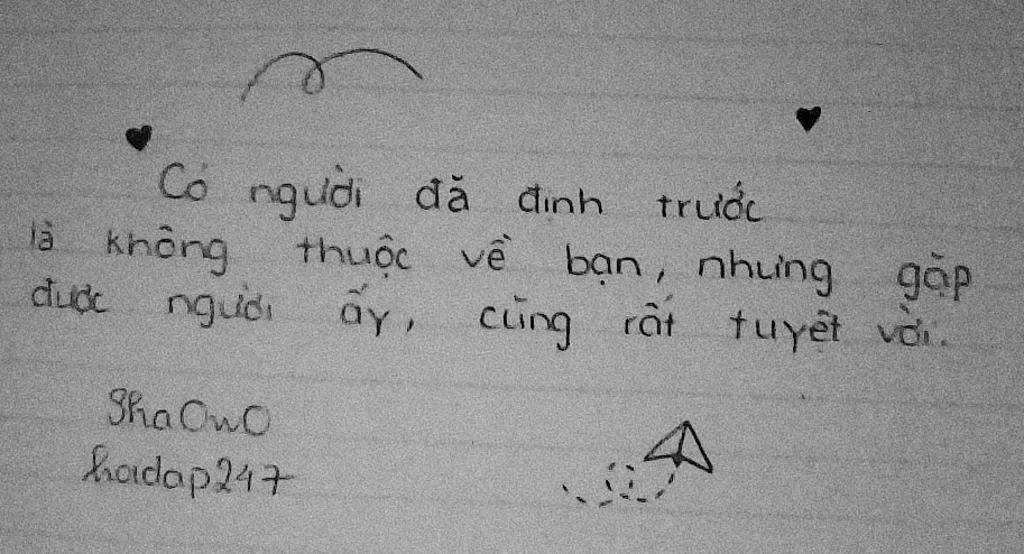 Có người đã định trước
là không thuộc về bạn, nhưng gặp
được người ấy, cũng rất tuyệt vời.
ShaOwO
hadap247